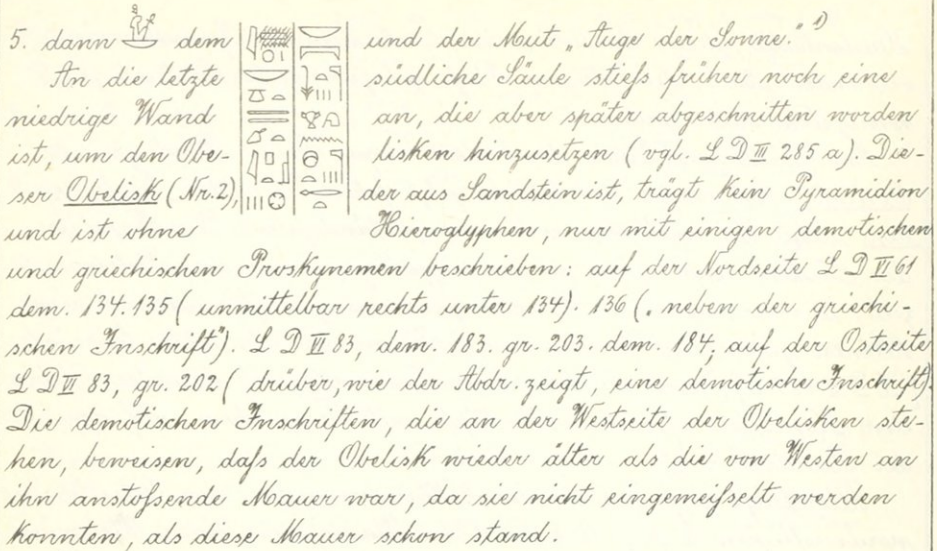 5. dann dem und der Mut „Auge der Sonne.“ 1)
An die letzte südliche Säule stiefs früher noch eine
niedrige Wand an, die aber später abgeschnitten worden
ist, um den Obe- lisken hinzusetzen (vgl. L D III 285 a). Die-
ser Obelisk (Nr. 2), der aus Sandstein ist, trägt kein Pyramidion
und ist ohne Hieroglyphen, nur mit einigen demotischen
und griechischen Proskynemen beschrieben: auf der Nordseite L D VI 61
dem. 134. 135 (unmittelbar rechts unter 134). 136 („neben der griechi-
schen Inschrift“). L D VI 83, dem. 183. gr. 203. dem. 184, auf der Ostseite
L D VI 83, gr. 202 (drüber, wie der Abdr. zeigt, eine demotische Inschrift).
Die demotischen Inschriften, die an der Westseite der Obelisken ste-
hen, beweisen, dafs der Obelisk wieder älter als die von Westen an
ihn anstofsende Mauer war, da sie nicht eingemeifselt werden
konnten, als diese Mauer schon stand.